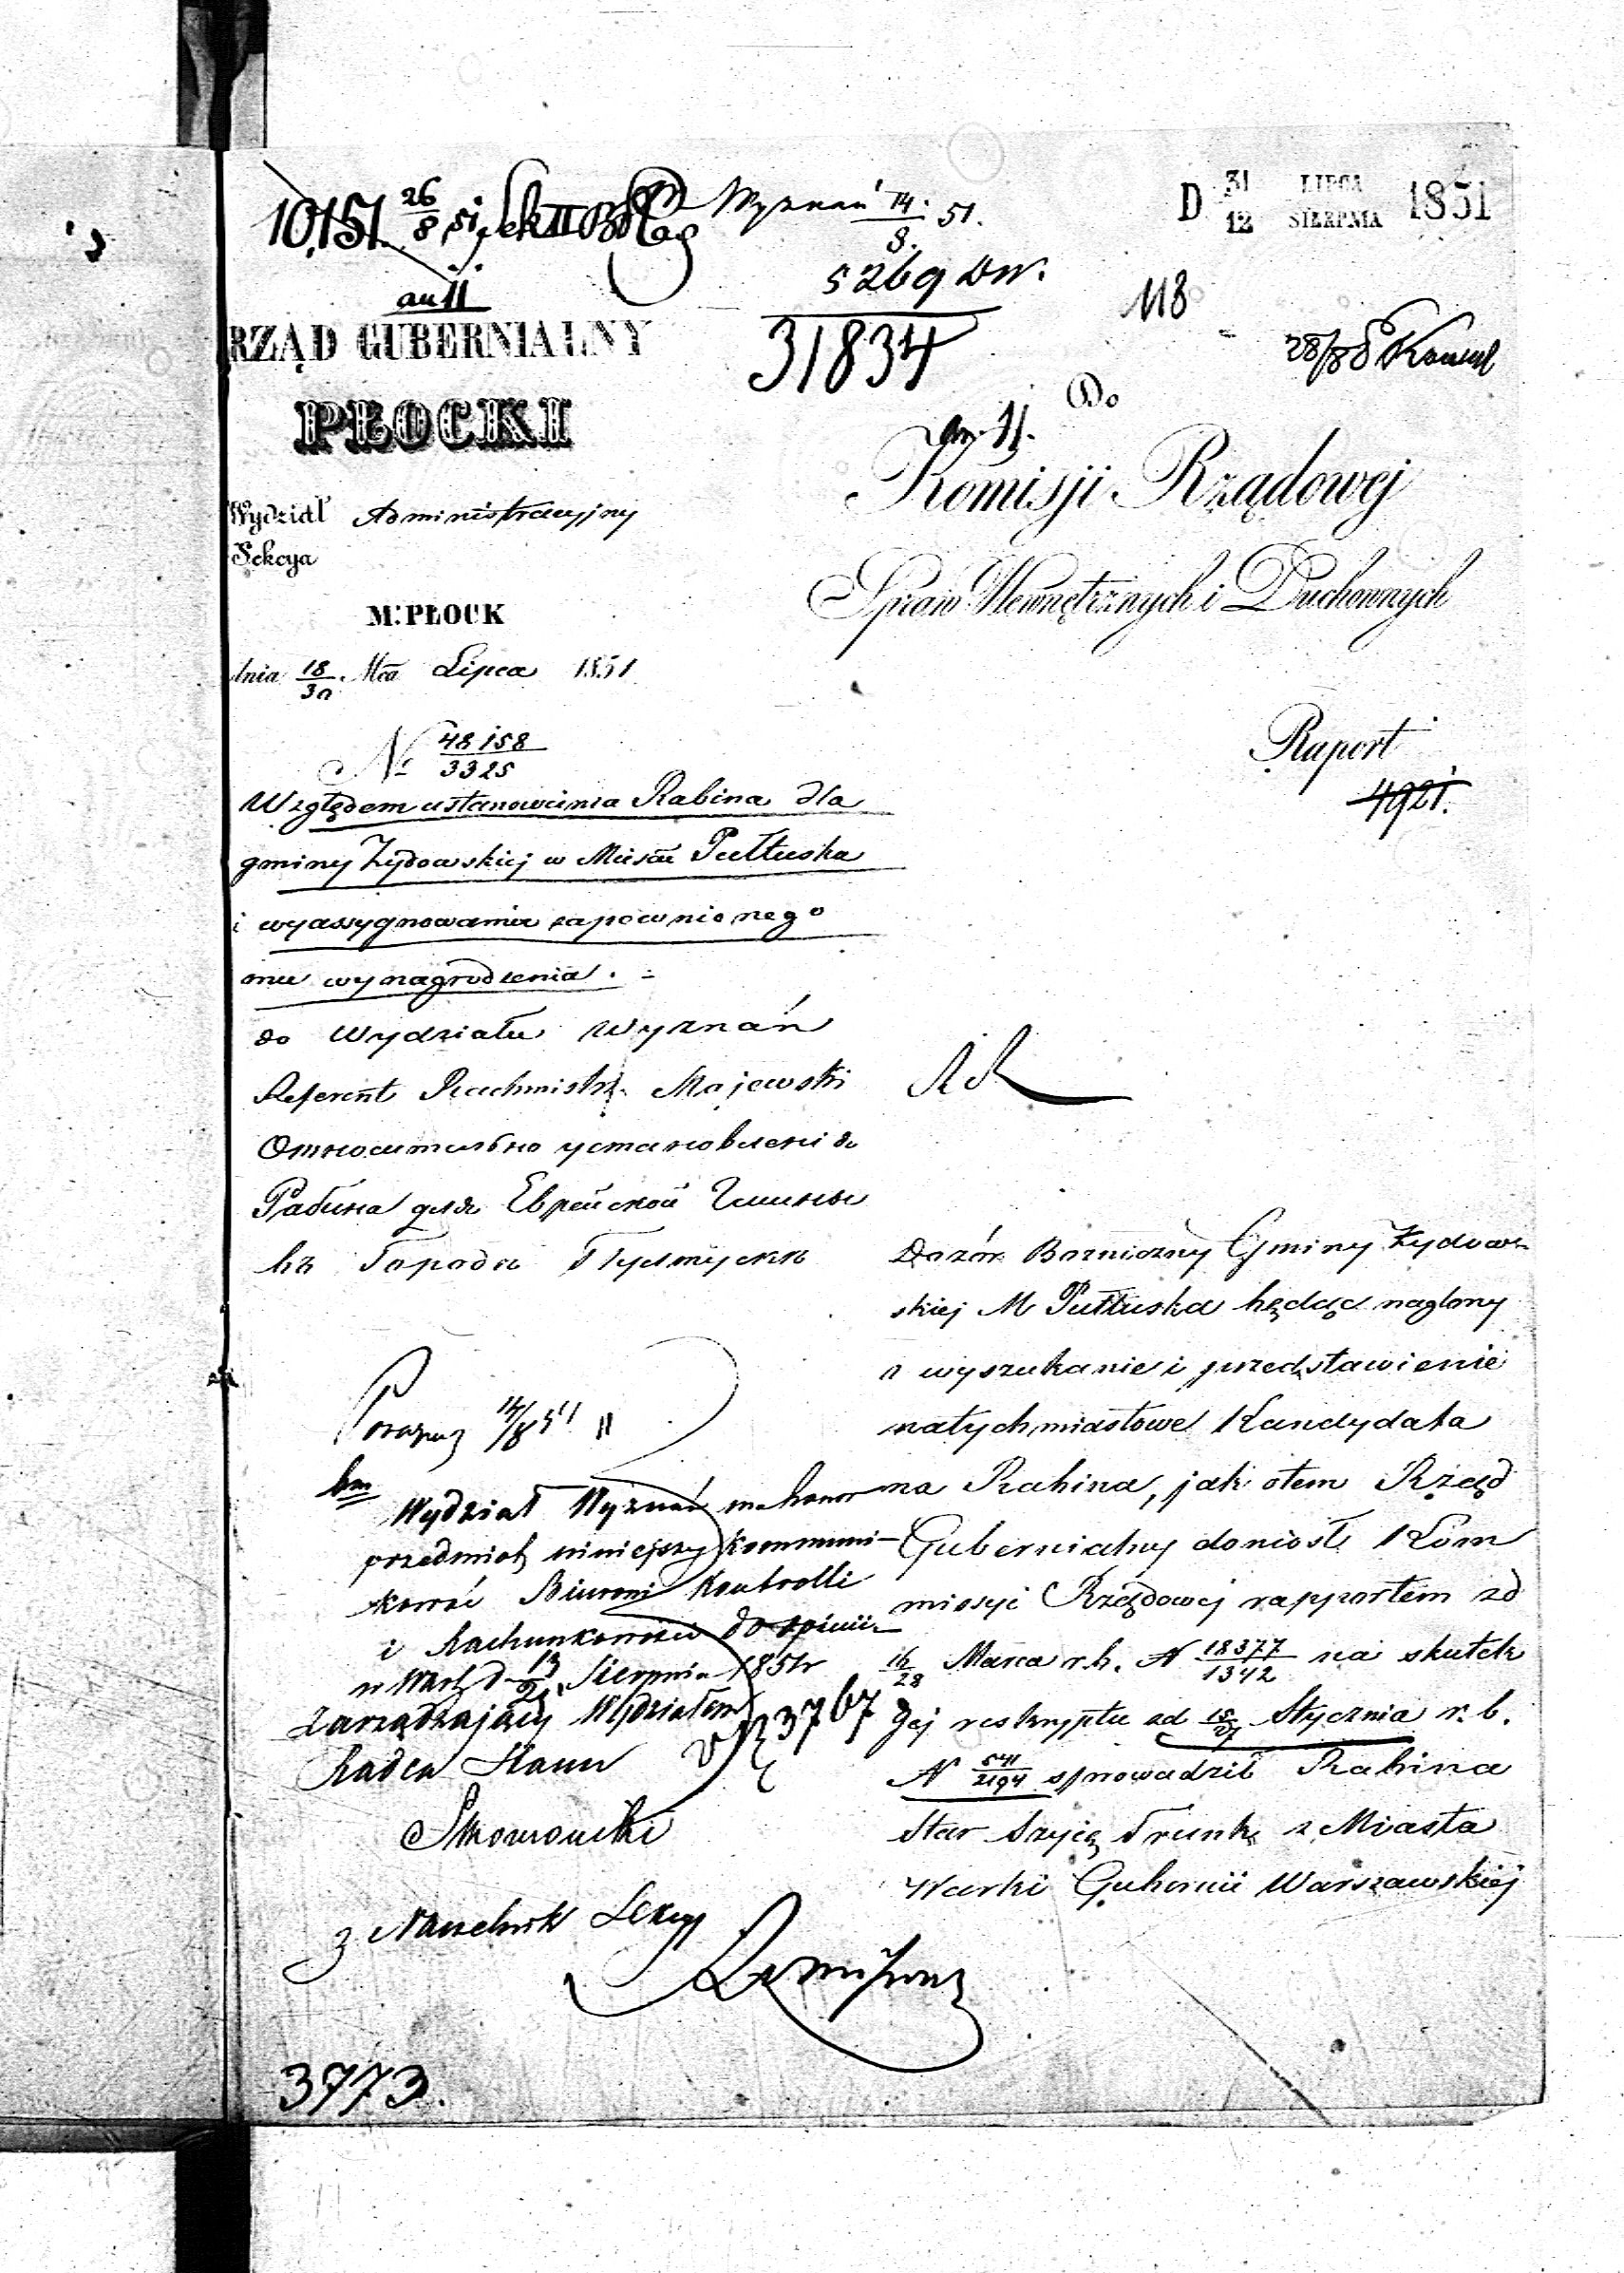 10,151 26/8 51 Sek II
Wyznań 14./8. 51.
D 31/12 LIPCA/SIERPNIA 1851
5269 Dw.
31834
118
28/8
an 11
RZĄD GUBERNIALNY
PŁOCKI
Wydział Administracyjny
Sekcya
M. PŁOCK
dnia 18/30. Mca Lipca 1851
№ 48158/3325
Względem ustanowienia Rabina dla
gminy Żydowskiej w Mieście Pułtusku
i wyassygnowania zapewnionego
mu wynagrodzenia.
do Wydziału Wyznań
Referent Rachmistrz Majewski
Относительно установлени
Рабина для Еврейской Гмины
въ Городѣ Пултускѣ
Do
Komisji Rządowej
Spraw Wewnętrznych i Duchownych
Raport
4921.
Dozór Bożniczny Gminy Żydow-
skiej M Pułtuska będąc naglony
o wyszukanie i przedstawienie
natychmiastowe Kandydata
na Rabina, jak otem Rząd
Gubernialny doniosł Kom
missyi Rządowej rapportem zd
16/28 Marca r.b. N 18377/1342 na skutek
Jej reskryptu zd Stycznia r. b.
N 541/2194 sprowadził Rabina
Szyję Trunk z Miasta
Warki Gubernii Warszawskiej
Wydział Wyznań ma honor
przedmiot niniejszy kommuni-
kować Biurowi Kontrolli
i Rachunkowości do opinii
w Warsz d Sierpnia 1851 r
Zarządzający Wydziałem
Radca Stanu
3767
Naczelnik Sekcyi
3773.